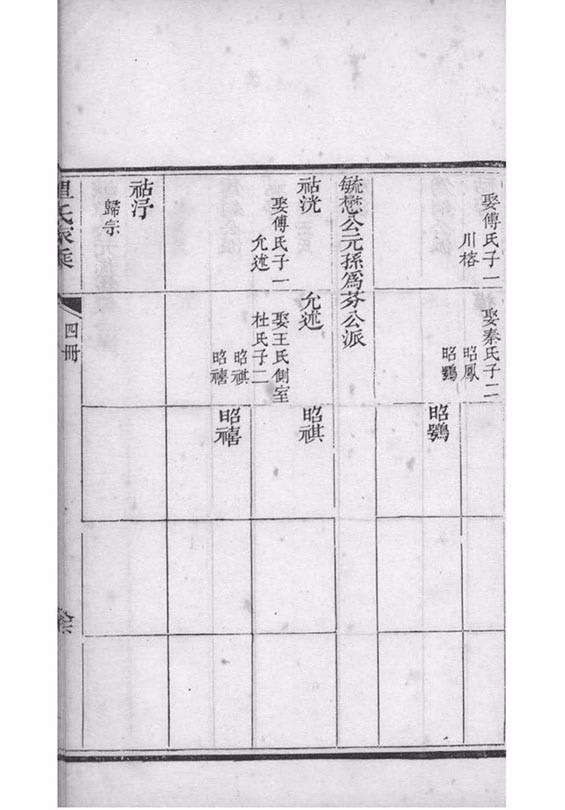 娶傅氏子一
川榕
娶秦氏子二
昭鳳
昭鸚
昭鸚
毓懋公元孫爲芬公派
祜洸
娶傅氏子一
允述
允述
娶王氏側室
杜氏子二
昭祺
昭禧
昭祺
昭禧
祜
歸宗
氏家乘
四冊